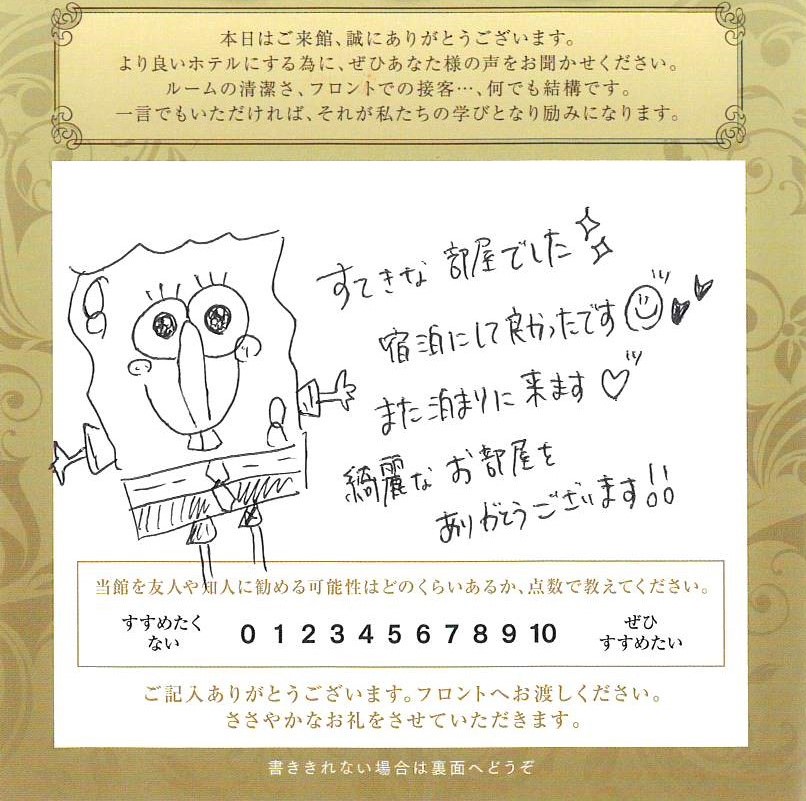 本日はご来館、誠にありがとうございます。
より良いホテルにする為に、ぜひあなた様の声をお聞かせください。
ルームの清潔さ、フロントでの接客…、何でも結構です。
一言でもいただければ、それが私たちの学びとなり励みになります。
すてきな部屋でした
宿泊にして良かったです
また泊まりに来ます♡
綺麗なお部屋を
ありがとうございます!!
当館を友人や知人に勧める可能性はどのくらいあるか、点数で教えてください。
すすめたく
ない
0 1 2 3 4 5 6 7 8 9 10
ぜひ
すすめたい
ご記入ありがとうございます。フロントへお渡しください。
ささやかなお礼をさせていただきます。
書ききれない場合は裏面へどうぞ